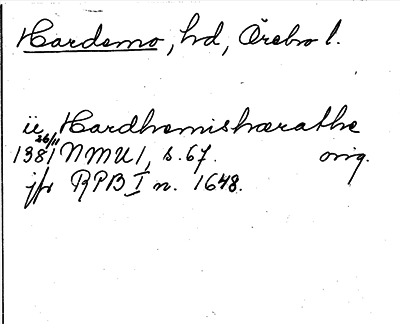 Hardemo, hd, Örebro l.
ii Hardhemishærathe
26/11
1381 NMU 1, s. 67. orig.
jfr RPB I n. 1648.